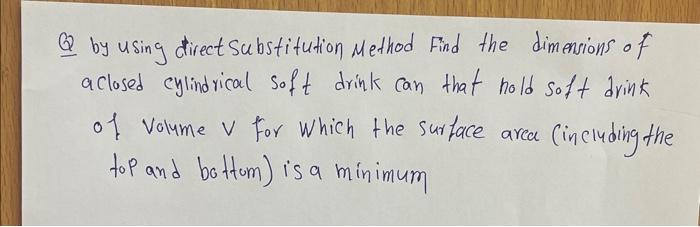 Q by using direct Substitution Method Find the dimensions of
a closed cylindrical soft drink can that hold soft drink
of Volume V for which the surface area (including the
top and bottom) is a minimum